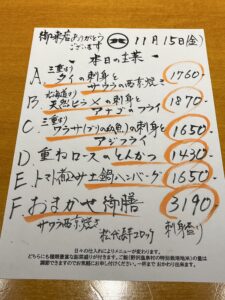 御来店ありがとう
ございます
11月15日(金)
本日の主菜
A. 三重より
タイの刺身と
サワラの西京焼き 1760-
B. 北海道より
天然ヒラメの刺身と
アナゴのフライ 1870-
C. 三重より
ワラサ(ブリの幼魚)の刺身と
アジフライ 1650-
D. 重ねロースのとんかつ 1430-
E. トマト煮込み土鍋ハンバーグ 1650-
F おまかせ御膳 3190-
サワラ西京焼き 刺身盛り
コロッケ
日々の仕入れによりメニューが変わります。